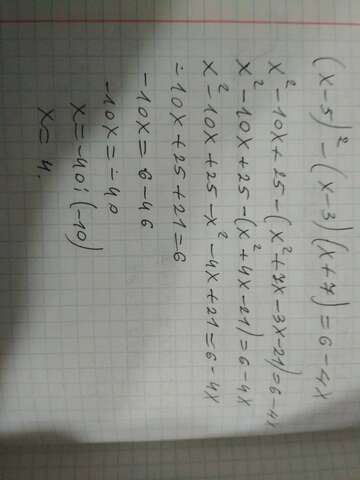 (x-5)² - (x-3)(x+7) = 6-4x
x² - 10x + 25 - (x² + 7x - 3x - 21) = 6-4x
x² - 10x + 25 - (x² + 4x - 21) = 6-4x
x² - 10x + 25 - x² - 4x + 21 = 6-4x
- 10x + 25 + 21 = 6
- 10x = 6 - 46
- 10x = - 40
x = - 40 : (-10)
x = 4.